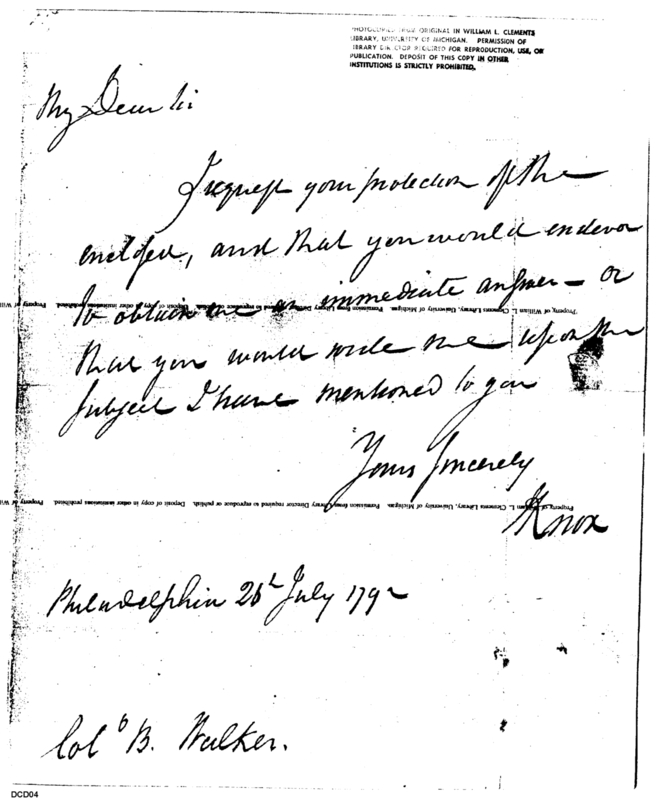 PHOTOCOPIED FROM ORIGINAL IN WILLIAM L. CLEMENTS
LIBRARY, UNIVERSITY OF MICHIGAN. PERMISSION OF
LIBRARY DIRECTOR REQUIRED FOR REPRODUCTION, USE, OR
PUBLICATION. DEPOSIT OF THIS COPY IN OTHER
INSTITUTIONS IS STRICTLY PROHIBITED.
My Dear Sir
I request your protection of the
enclosed, and that you would endevor
to obtain me an immediate answer – or
Property of William L. Clements Library, University of Michigan. Permission from Library Director required to reproduce or publish. Deposit of copy in other institutions prohibited.
that you would write me upon the
subject I have mentioned to you
Yours Sincerely
Property of William L. Clements Library, University of Michigan. Permission from Library Director required to reproduce or publish. Deposit of copy in other institutions prohibited.
HKnox
Philadelphia 26h July 1792
Colo B. Walker.
DCD04